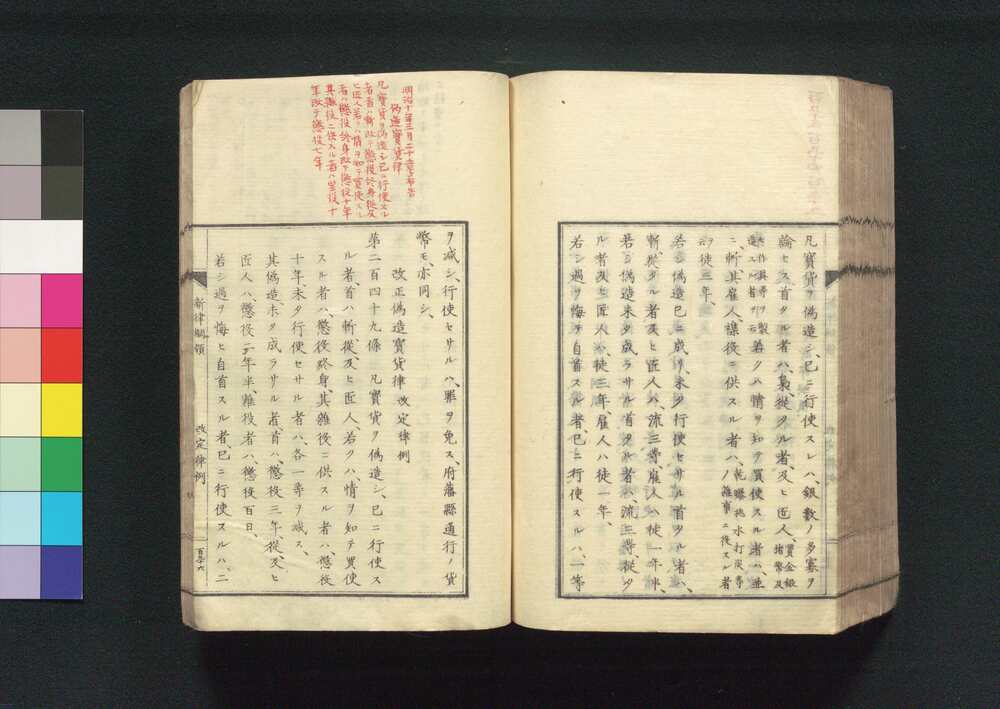 凡寳貨ヲ偽造シ、已ニ行使スレハ、銀數ノ多寡ヲ
論セス首タル者ハ、梟、從タル者、及ヒ匠人、寳金銀
楮幣及
ヒ作具等ヲ製
造スル者ヲ云若クハ情ヲ知テ買使スル者ハ、並
ニ、斬其雇人、襍役ニ供スル者ハ、乾曝挑水打炭等
ノ雜事ニ役スル者
ヲ云徒三年、
若シ偽造已ニ成リ、未タ行使セサル首タル者ハ、
斬、從タル者及ヒ匠人ハ、流三等、雇人ハ徒一年半、
若シ偽造未タ成ラサル首タル者ハ、流三等、從タ
ル者及ヒ匠人ハ、徒三年、雇人ハ徒一年、
若シ過ヲ悔テ自首スル者、已ニ行使スルハ、一等
明治十年三月二十
偽造寳貨律
凡寳貨ヲ偽造シ已ニ行使スル
者首ハ斬改テ懲役終身從及
ヒ匠人若クハ情ヲ知テ買使スル
者ハ懲役終身改テ懲役十年
其雜役ニ供スル者ハ懲役十
年改テ懲役七年
ヲ减シ、行使セサルハ、罪ヲ免ス、府藩縣通行ノ貨
幣モ、亦同シ、
改正偽造寳貨律 改定律例
第二百四十九條 凡寳貨ヲ偽造シ、已ニ行使ス
ル者、首ハ斬、從及ヒ匠人、若クハ、情ヲ知テ買使
スル者ハ、懲役終身、其雜役ニ供スル者ハ、懲役
十年、未タ行使セサル者ハ、各一等ヲ减ス、
其偽造、未タ成ラサル者、首ハ、懲役三年、從、及ヒ
匠人ハ、懲役二年半、雜役者ハ、懲役百日、
若シ過ヲ悔ヒ自首スル者、已ニ行使スルハ、二
新律綱領 改定律例